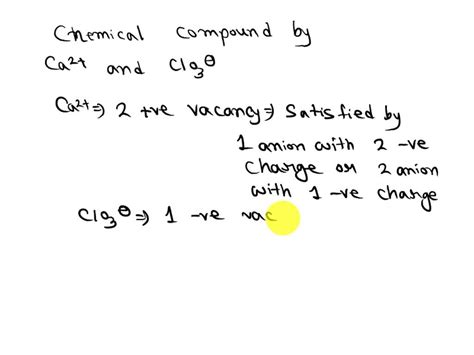 Chemical compound by
Ca²⁺ and ClO₃⊖
Ca²⁺ ⇒ 2 +ve vacancy ⇒ Satisfied by
1 anion with 2 -ve
charge or 2 anion
with 1 -ve charge
ClO₃⊖ ⇒ 1 -ve vac